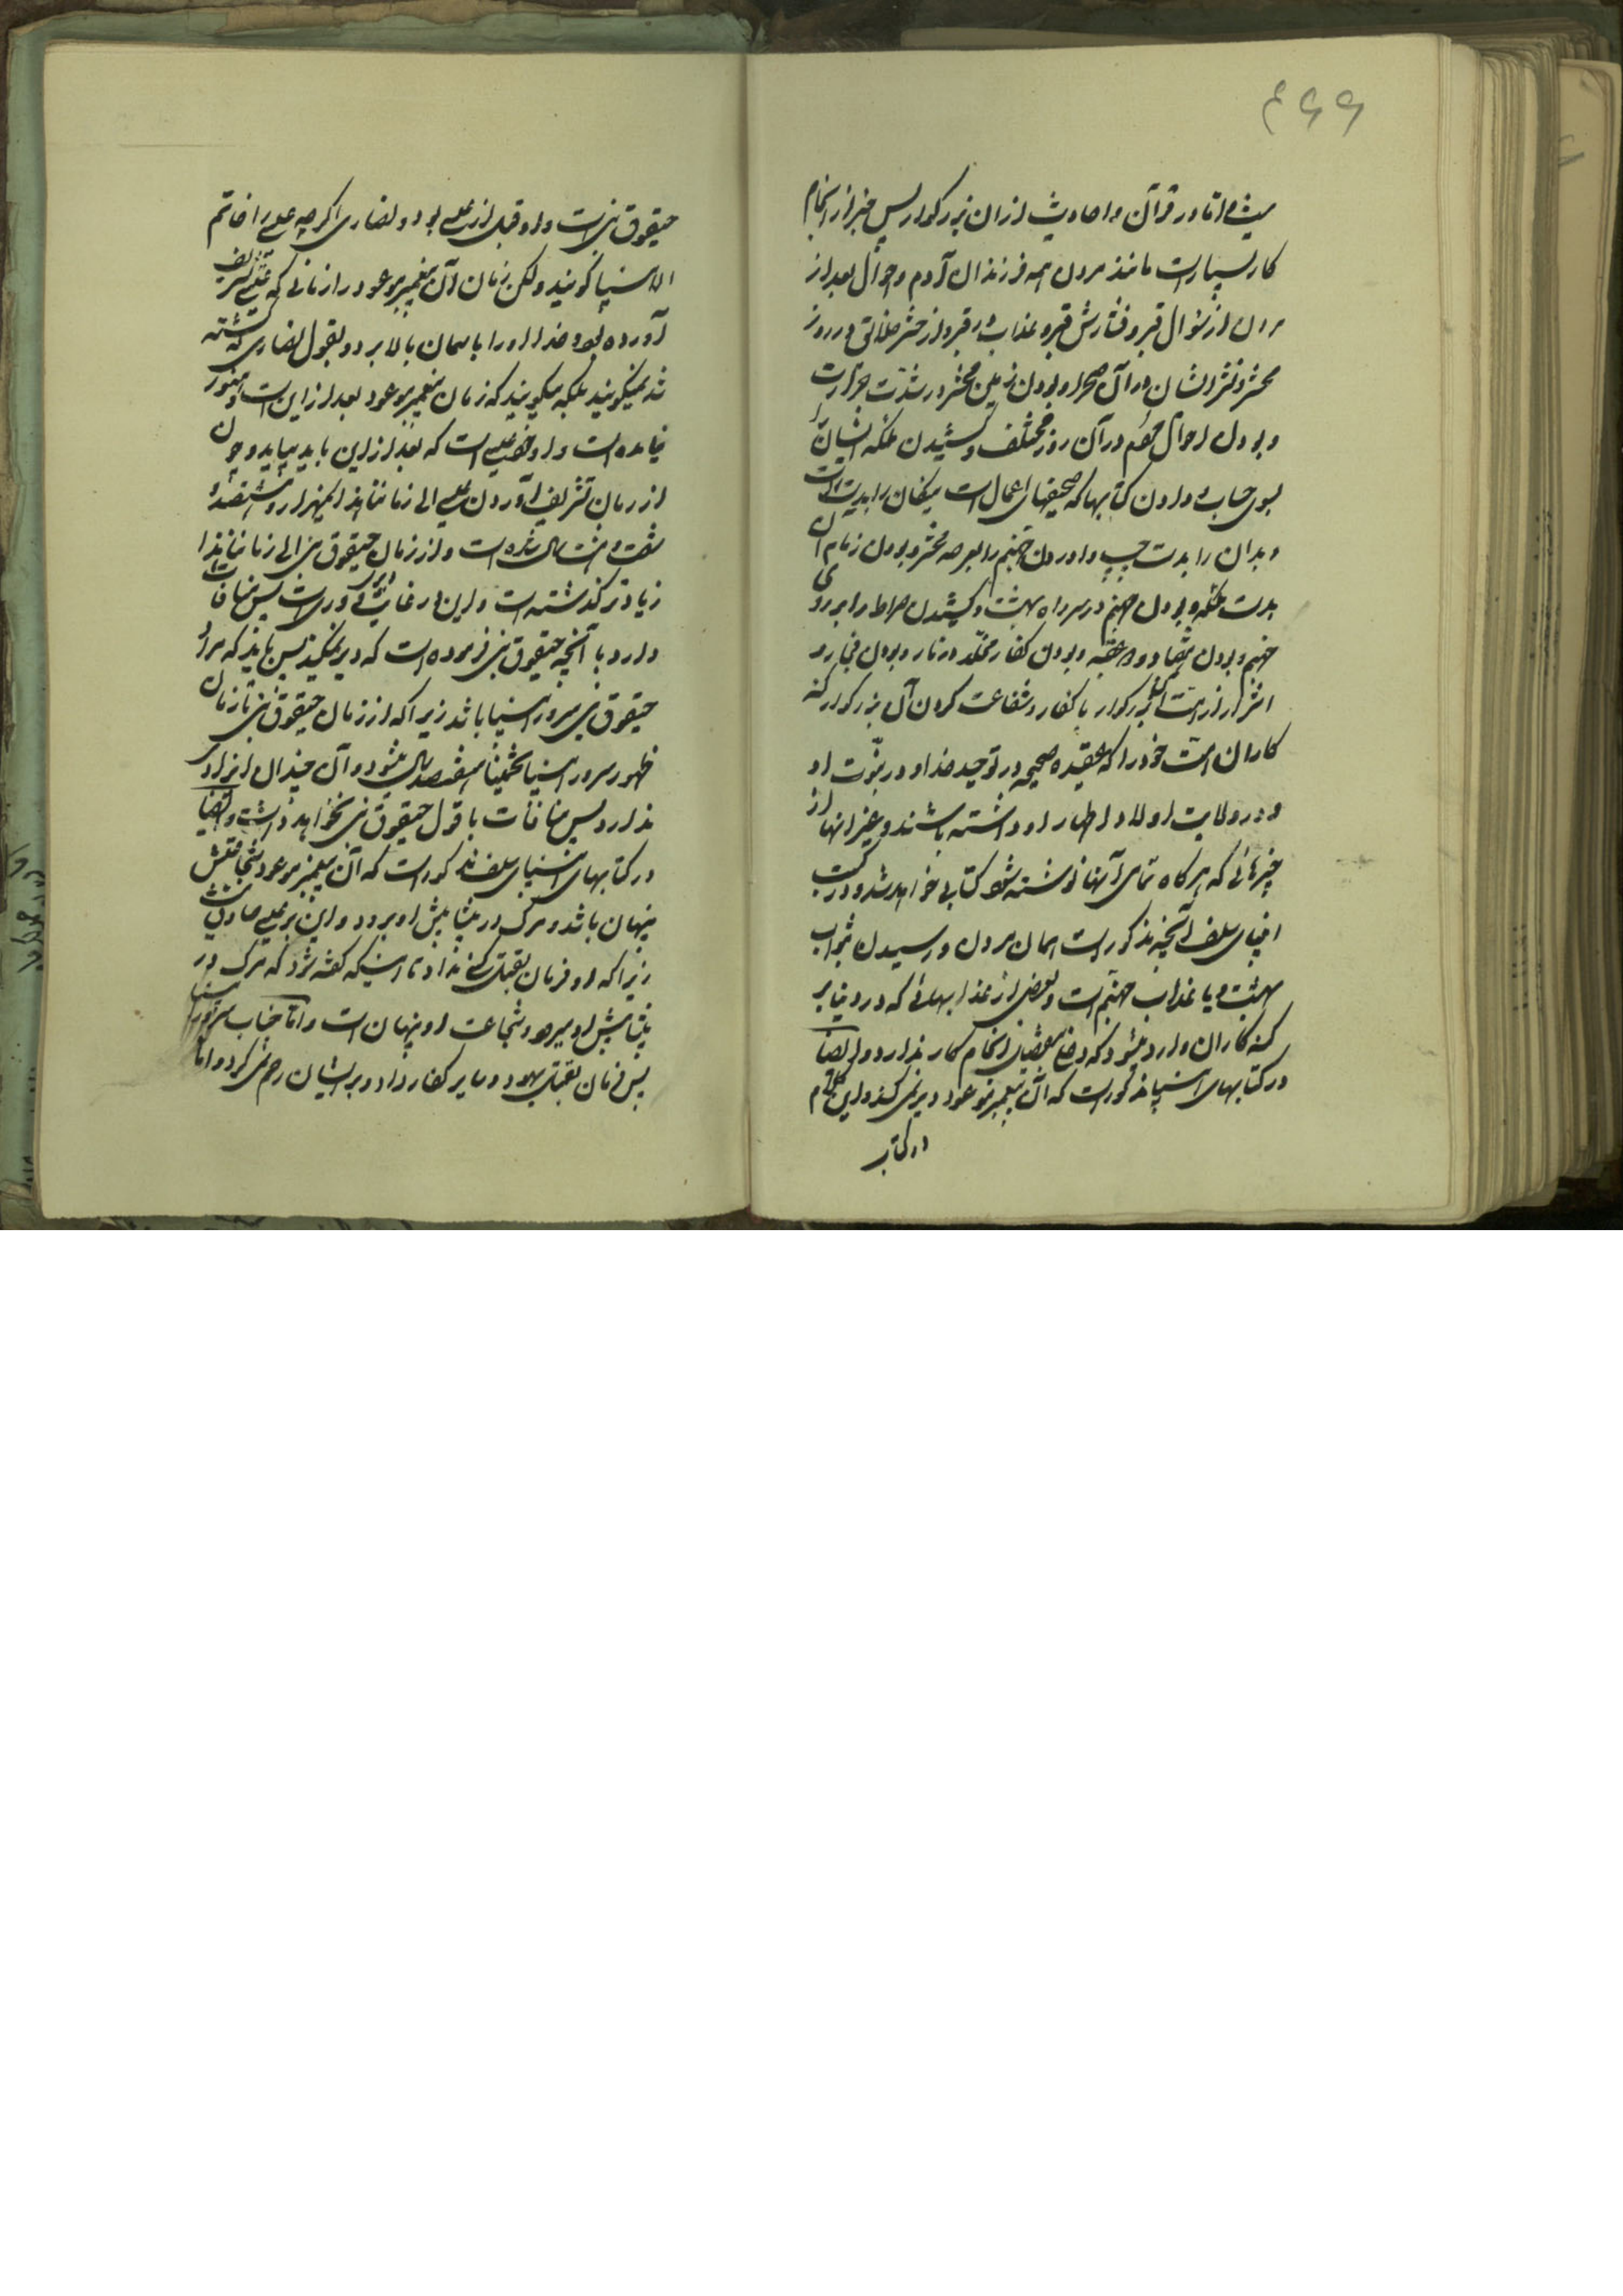 ۴۶۶
میشود اما در قرآن و احادیث از آن بزرگوار پس خبر از انجام
کار بسیار است مانند مردن همه فرزندان آدم و احوال بعد از
مردن از سؤال قبر و فشارش قبر و عذاب در قبر و از حشر خلائق در روز
محشر و نشر ایشان در آن صحرا و بودن زمین محشر در شدت حرارت
و بودن احوال مردم در آن روز مختلف و کشیدن ملئکه ایشان را
بسوی حساب و دادن کتابها که صحیفهای اعمال است نیکان را بدست راست
و بدان را بدست چپ و اوردن جهنم را بعرصه محشر و بودن زمام آن
بدست ملئکه و بودن جهنم در سر راه بهشت و کشیدن صراط را بر روی
جهنم و بودن عقبه و بودن کفار مخلد در نار و بودن فجار و
اشرار از امت آن بزرگوار با کفار و شفاعت کردن آن بزرگوار گنه
کاران امت خود را که عقیده صحیح در توحید خدا و در نبوت او
و در ولایت اولاد اطهار او داشته باشند و غیر اینها از
چیزهائی که هرگاه تمامی آنها نوشته شود کتابی خواهد شد و در کتب
انبیای سلف آنچه مذکور است همان مردن و رسیدن بثواب
بهشت و یا عذاب جهنم است و بعضی از عذابهائی که در دنیا بر
گنه کاران وارد میشود که دخلی انجام کار ندارد و ایضا
در کتابهای انبیا مذکور است که آن پیغمبر موعود دیر نمی کند و این کلام
در کتاب
حیقوق نبی است و او قبل از عیسی بود و نصاری اگرچه عیسی را خاتم
الانبیا گویند ولکن زمان آن پیغمبر موعود را زمانی که عیسی تشریف
آورده بود و خدا او را باسمان بالا برد و بقول نصاری کشته
شد نمیگویند بلکه میگویند که زمان پیغمبر موعود بعد از این است و هنوز
نیامده است و او خود عیسی است که بعد از این باید بیاید و چون
از زمان تشریف آوردن عیسی الی زماننا هذا یکهزار و ششصد و
شصت و هشت سال شده است و از زمان حیقوق نبی الی زماننا هذا
زیادتر گذشته است و این در غایت دوری است پس منافات
دارد با آنچه حیقوق نبی فرموده است که دیر نمیکند پس باید که مراد
حیقوق نبی سرور انبیا باشد زیرا که از زمان حیقوق نبی تا زمان
ظهور سرور انبیا تخمینا هفتصد سال میشود و آن چندان
ندارد پس منافات با قول حیقوق نبی نخواهد داشت و ایضا
در کتابهای انبیای سلف مذکور است که آن پیغمبر موعود شجاعتش
پنهان باشد و مرگ در پیشاپیش او برود و این بر عیسی صادق نیست
زیرا که او فرمان بقتل کسی نداد تا اینکه گفته شود که مرگ در
پیشاپیش او میرود و شجاعت او پنهان است و اما جناب سرور انبیا
پس فرمان بقتل یهود و سایر کفار داد و بر ایشان رحم نمی کرد و اما